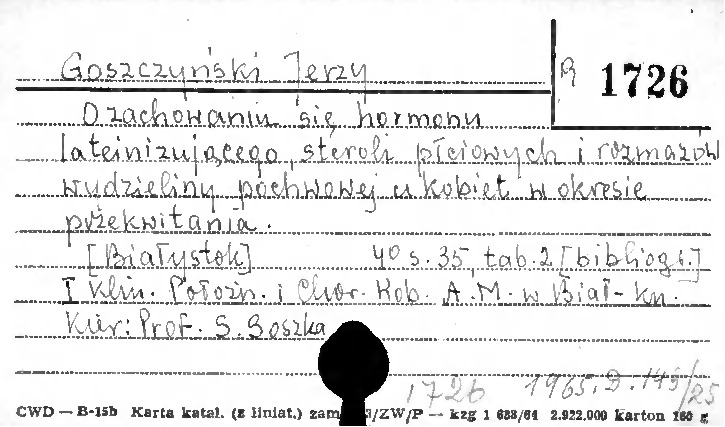 Goszczyński Jerzy
R 1726
O zachowaniu się hormonu
luteinizującego, steroli płciowych i rozmazów
wydzieliny pochwowej u kobiet w okresie
przekwitania.
[Białystok] 4° s. 35, tab. 2 [bibliogr.]
I Klin. Położn. i Chor. Kob. A.M. w Biał-ku.
Kier: Prof. S. Soszka
1726 1965. D. 145/25
CWD — B-15b Karta katal. (z liniat.) zam /ZW/P — kzg 1 688/64 2.922.000 karton 160 g